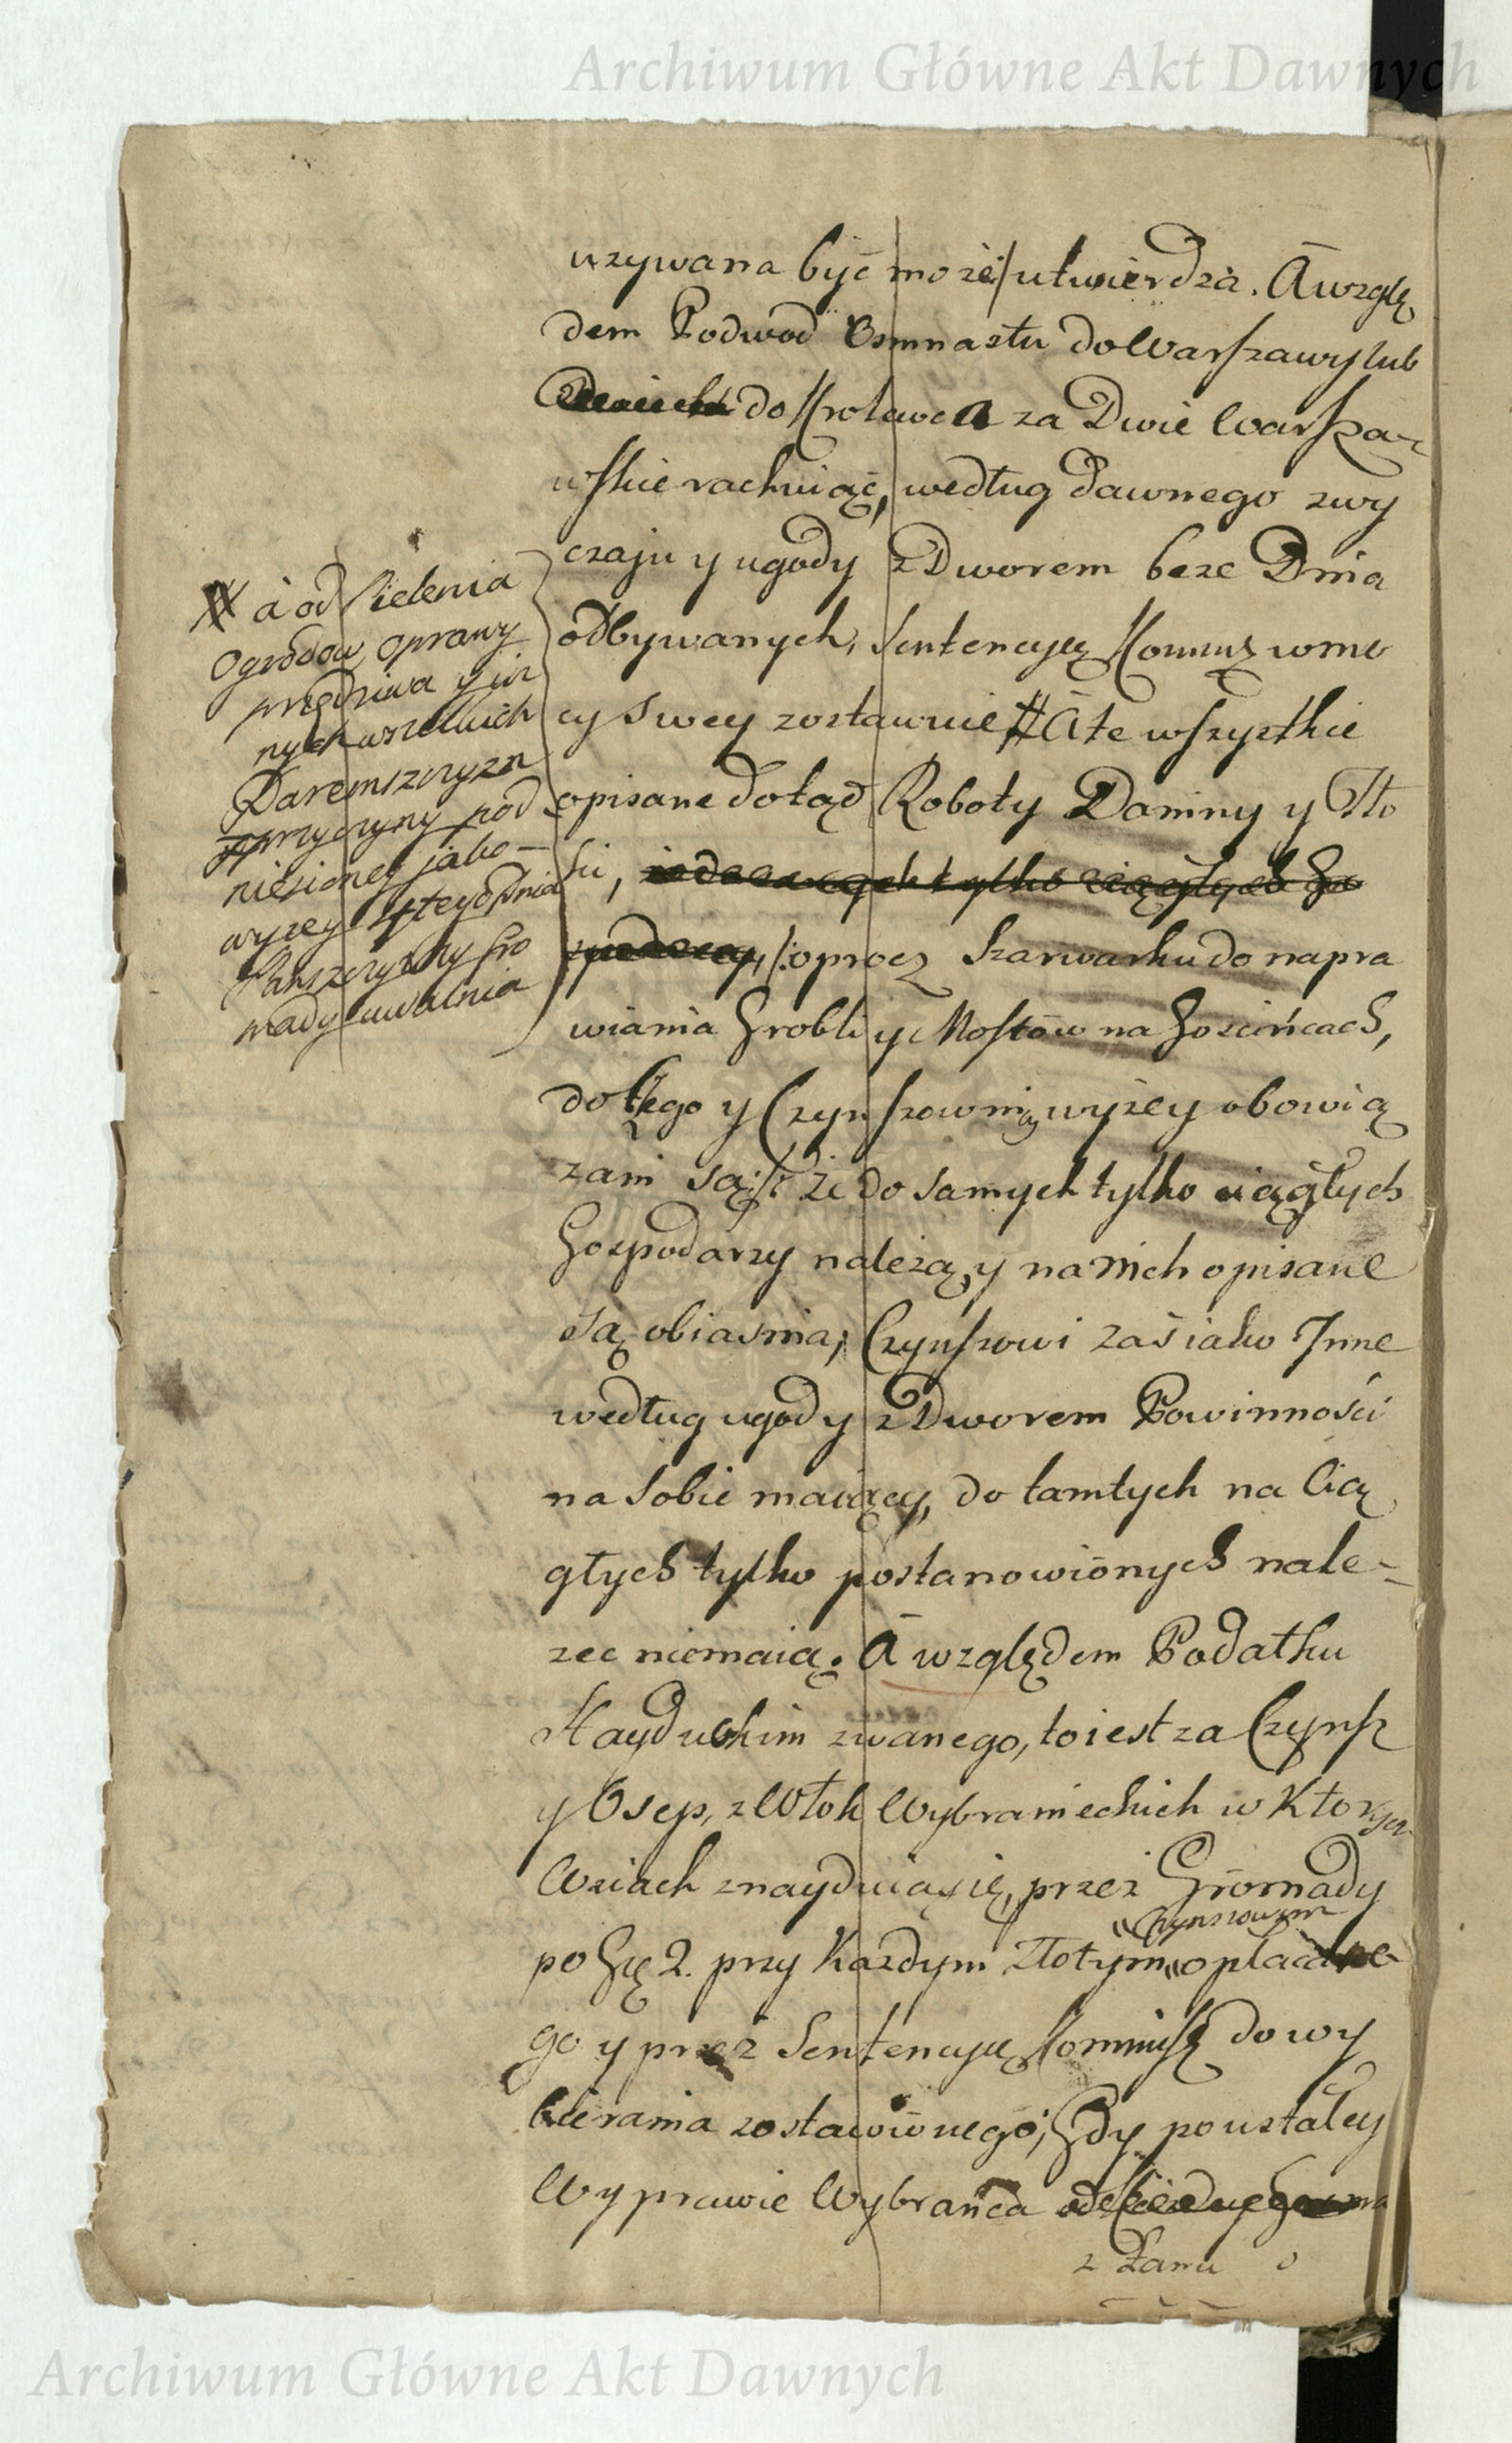 Archiwum Główne Akt Dawnych
uzywana być może/ utwierdza. A wzglę
dem Podwod Osmnastu do Warszawy lub
do Krolewca za Dwie Warsza-
wskie rachuiąc, według dawnego zwy
czaju y ugody z Dworem beze Dnia
odbywanych, Sentencyą Kommiz w mo
cy swey zostawuie # A te wszystkie
opisane dotąd Roboty Daniny y Tło
ki, iedna tylko ciągłych Go
spodarzy, /: oprocz Szarwarku do napra
wiania Grobli y Mostow na Gozcińcach,
do tego y Czynszowni wyżey obowią
zani są :/ że do samych tylko ciągłych
Gospodarzy należą, y na nich opisane
są, obiasnia; Czynszowi zaś iako Inne
według ugody z Dworem Powinności
na sobie maiący, do tamtych na Cią
głych tylko postanowionych nale-
zec niemaią. A względem Podatku
Hayduckim zwanego, to iest za Czynsz
y Osep, z Włok Wybranieckich w Ktorych
Wsiach znayduią się, przez Gromady
"Czynszowym
po Gę 2. przy Kazdym Złotym " opłacane
go y przez Sentencyą Kommisį do wy
bierania zostawionego; Gdy po ustałey
Wyprawie Wybrańca
z Łanu
# a od Pielenia
Ogrodow, oprawy
przędziwa y in
nych wszelkich
Daremszczyzn
przyczyny pod
niesioney jako-
wyzey 4tego Dnia
Panszczyzny Gro
mady uwalnia
Archiwum Główne Akt Dawnych